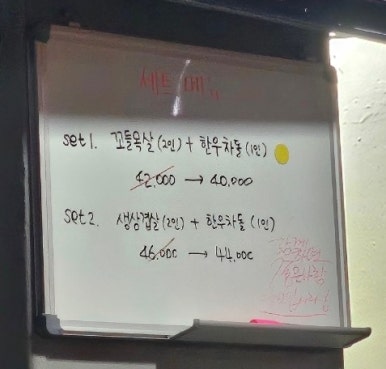 세트 메뉴
set1. 꼬들목살(2인) + 한우차돌(1인)
42,000 → 40,000
set2. 생삼겹살(2인) + 한우차돌(1인)
46,000 → 44,000